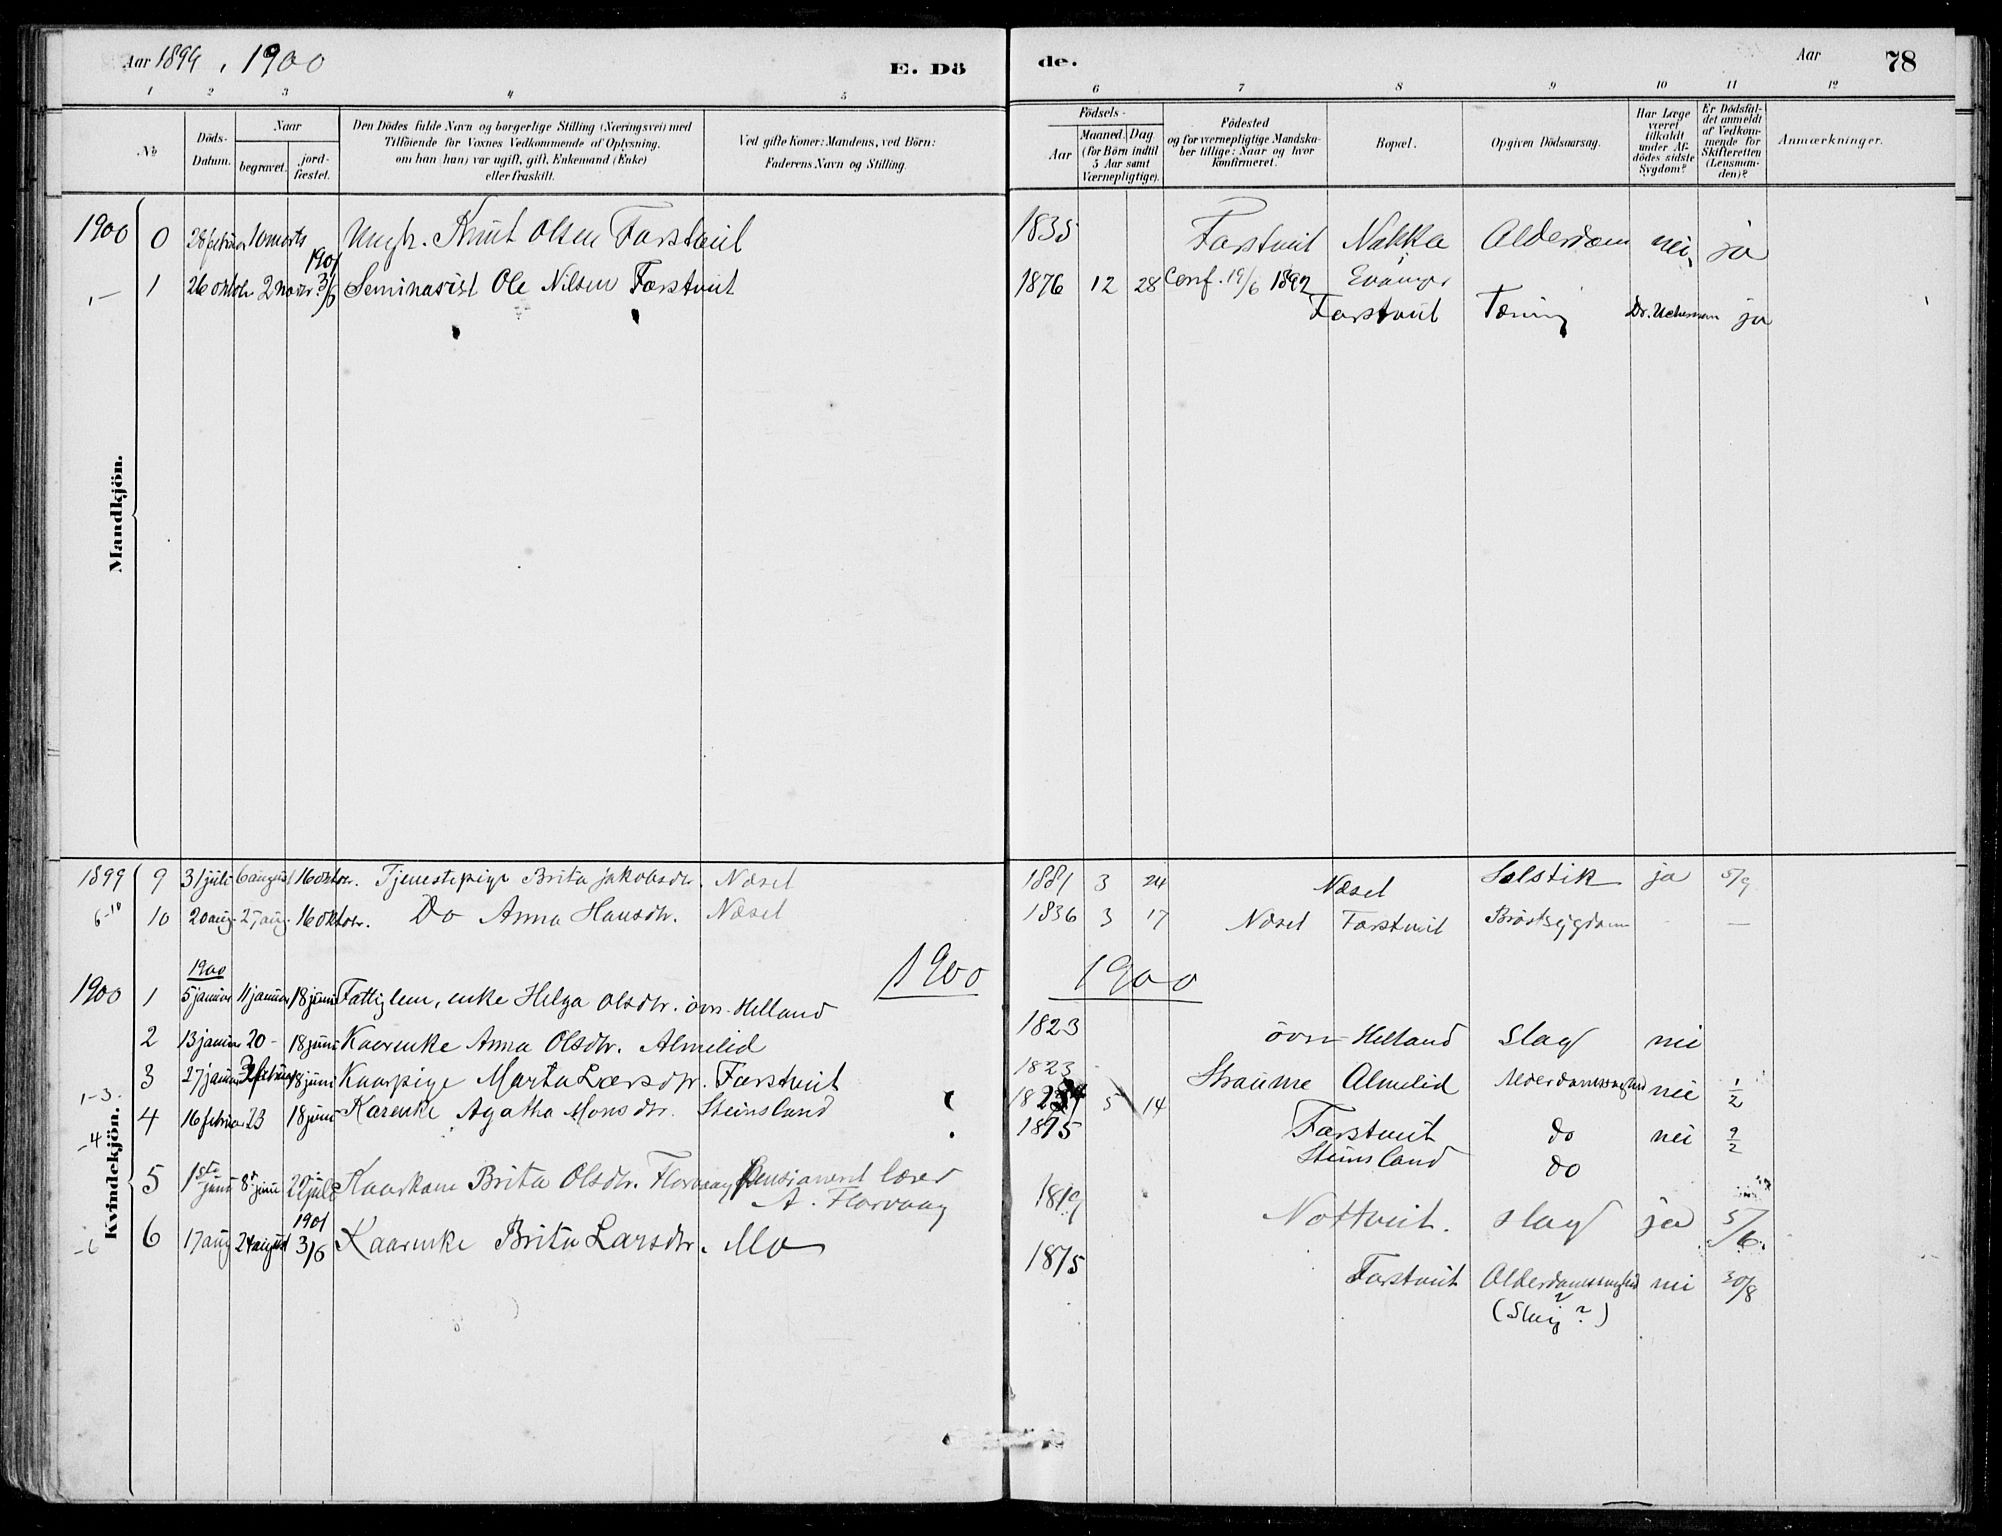 Aar 1899, 1900
E. Dö
de.
Aar
78
1 2 3 4 5 6 7 8 9 10 11 12
No
Döds-Datum.
Naar
begravet.
jord-fæstet.
Den Dödes fulde Navn og borgerlige Stilling (Næringsvei) med
Tilföiende for Voxnes Vedkommende af Oplysning.
om han (hun) var ugift, gift, Enkemand (Enke)
eller fraskilt.
Ved gifte Koner: Mandens, ved Börn:
Faderens Navn og Stilling.
Födsels-
Aar
Maaned. Dag
(for Börn indtil
5 Aar samt
Værnepligtige).
Födested
og for værnepligtige Mandska-
ber tillige: Naar og hvor
konfirmeret.
Bopæl.
Opgiven Dödsaarsag.
Har Læge
været
tilkaldt
under Af-
dödes sidste
Sygdom?
Er Dödsfal-
det anmeldt
af Vedkom-
mende for
Skifteretten
(Lensman-
den)?
Anmærkninger.
Mandkjön.
1900 0 28 februar 10 marts Ungk. Knut Olsen Farstveit 1835 Farstveit Nakka Alderdom nei ja
1 26 oktob 2 novbr 1901 3/6 Seminarist Ole Nilsen Farstveit 1876 12 28 Conf. 19/6 1892 Evanger
Farstveit Tæring Dr. ja
Kvindekjön.
1899 9 31 juli 6 august 16 oktbr. Tjenestepige Brita Jakobsdtr. Næset 1881 3 24 Næset Solstik ja 5/9
6-10 10 20 aug. 27 aug. 16 oktobr. Do Anna Hansdtr. Næset 1836 3 17 Næset Farstveit Bröstsygdom - —
1900 1900
1900 1900 1 5 januar 11 januar 18 juni Fattiglem, enke Helga Olsdtr. övr. Helland 1823 övr Helland Slag nei
2 13 januar 20 - 18 juni Kaarenke Anna Olsdtr. Almelid 1823 Straume Almelid Alderdomssvaghed nei 1/2
1-3. 3 27 januar 3 februar 18 juni Kaarpige Marta Larsdtr. Farstveit 5 14 Farstveit do nei 9/2
-4 4 16 februar 23 18 juni Karenke Agatha Monsdtr. Steinsland 1815 Steinsland do
5 1ste juni 8de juni 22 juli Kaarkone Brita Olsdtr. Florvaag Pensioneret lærer
A. Florvaag 1819 Nottveit. slag ja 5/6.
-6 6 17 aug 24 august 1901 3/6 Kaarenke Brita Larsdtr. Mo 1815 Farstveit Alderdomssvaghed nei 30/8
(Slag ?)